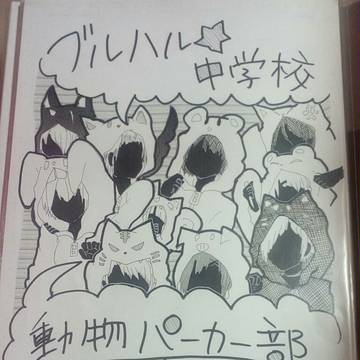 ブルハル☆
中学校
動物パーカー部